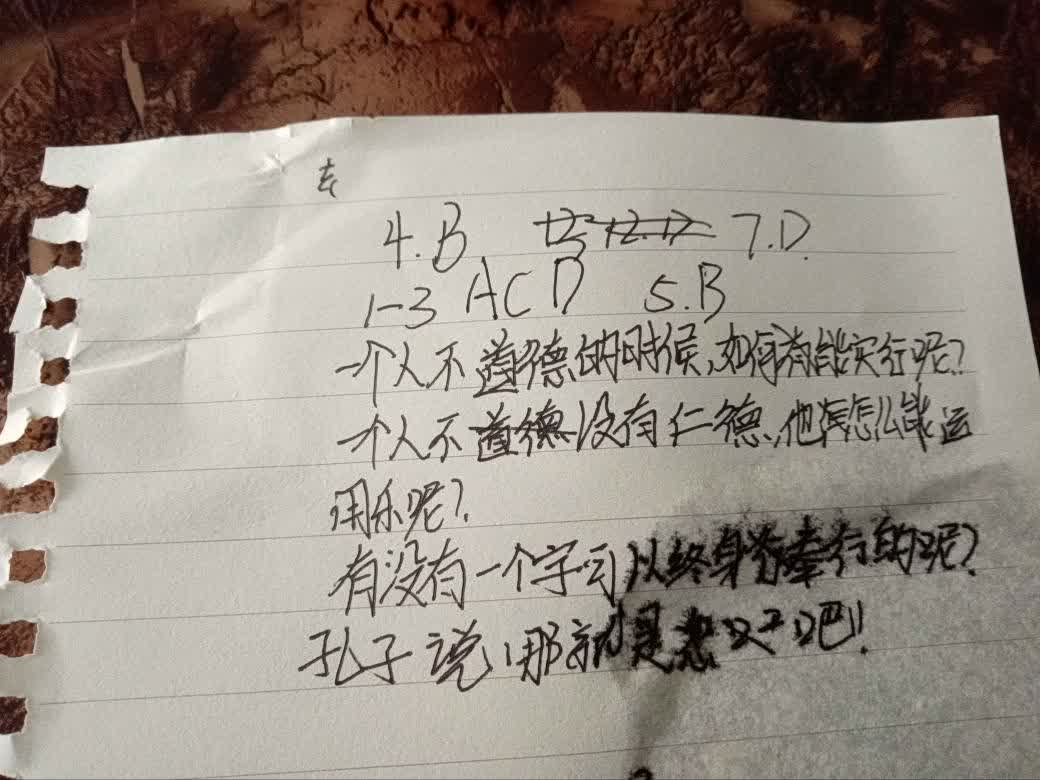 4.B 7.D.
1-3 ACD 5.B
一个人不道德的时候,如何能实行呢?
一个人不道德没有仁德,他怎么能运
用乐呢?
有没有一个字可以终身奉行的呢?
孔子说,那就是恕字吧!